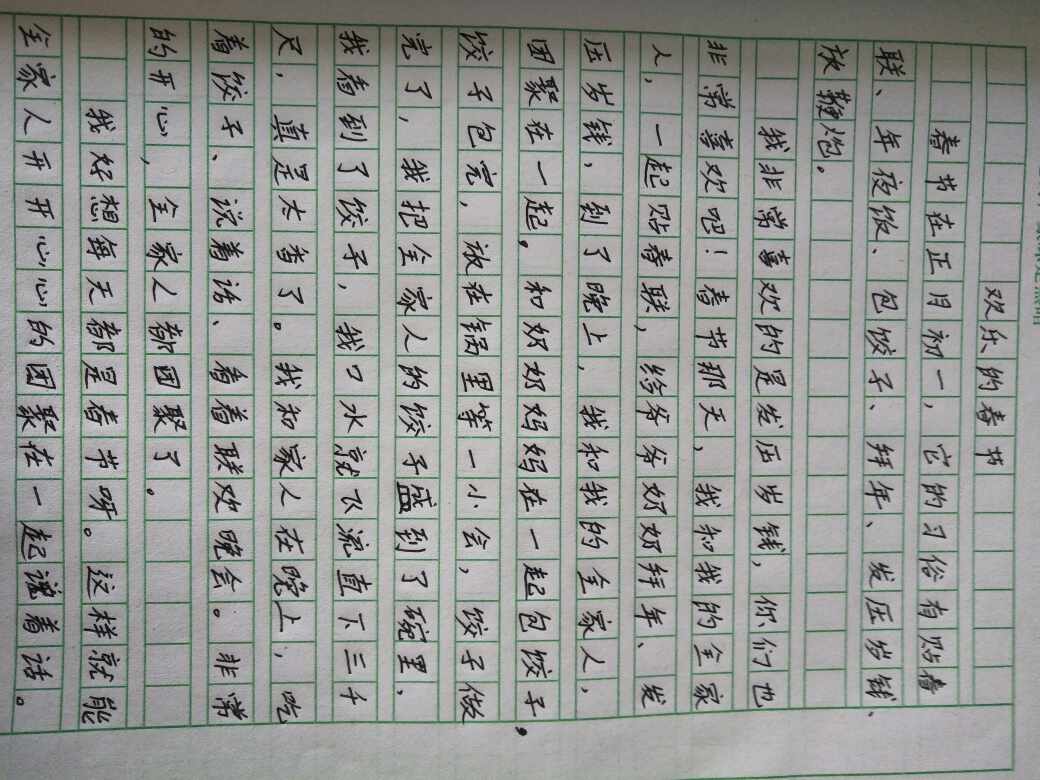 欢乐的春节
春节在正月初一，它的习俗有贴春
联、年夜饭、包饺子、拜年、发压岁钱、
放鞭炮。
我非常喜欢的是发压岁钱，你们也
非常喜欢吧！春节那天，我和我的全家
人，一起贴春联，给爷爷奶奶拜年、发
压岁钱，到了晚上，我和我的全家人，
团聚在一起。和奶奶妈妈在一起包饺子，
饺子包完，放在锅里等一小会，饺子做
完了，我把全家人的饺子盛到了碗里，
我看到了饺子，我口水就飞流直下三千
尺，真是太香了。我和家人在晚上，吃
着饺子、说着话、看着联欢晚会。非常
的开心，全家人都团聚了。
我好想每天都是春节呀。这样就能
全家人开开心心的团聚在一起说着话。